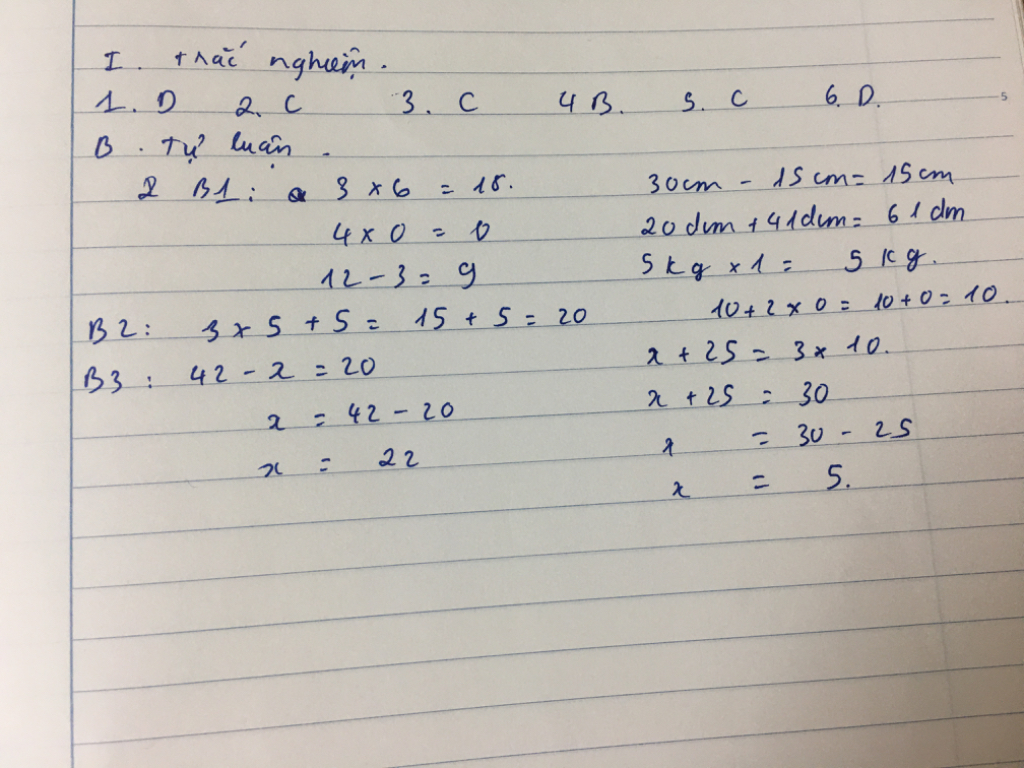 I. trắc nghiệm.
1. D 2. C 3. C 4 B. 5. C 6. D.
B. Tự luận.
2 B1: 3 x 6 = 18. 30cm - 15cm = 15cm
4 x 0 = 0 20dm + 41dm = 61dm
12 - 3 = 9 5kg x 1 = 5kg.
B2: 3 x 5 + 5 = 15 + 5 = 20 10 + 2 x 0 = 10 + 0 = 10.
B3: 42 - x = 20 x + 25 = 3 x 10.
x = 42 - 20 x + 25 = 30
x = 22 x = 30 - 25
x = 5.